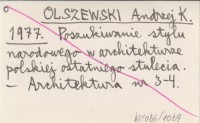 OLSZEWSKI Andrzej K.
1977. Poszukiwanie stylu
narodowego w architekturze
polskiej ostatniego stulecia.
– Architektura nr 3-4.